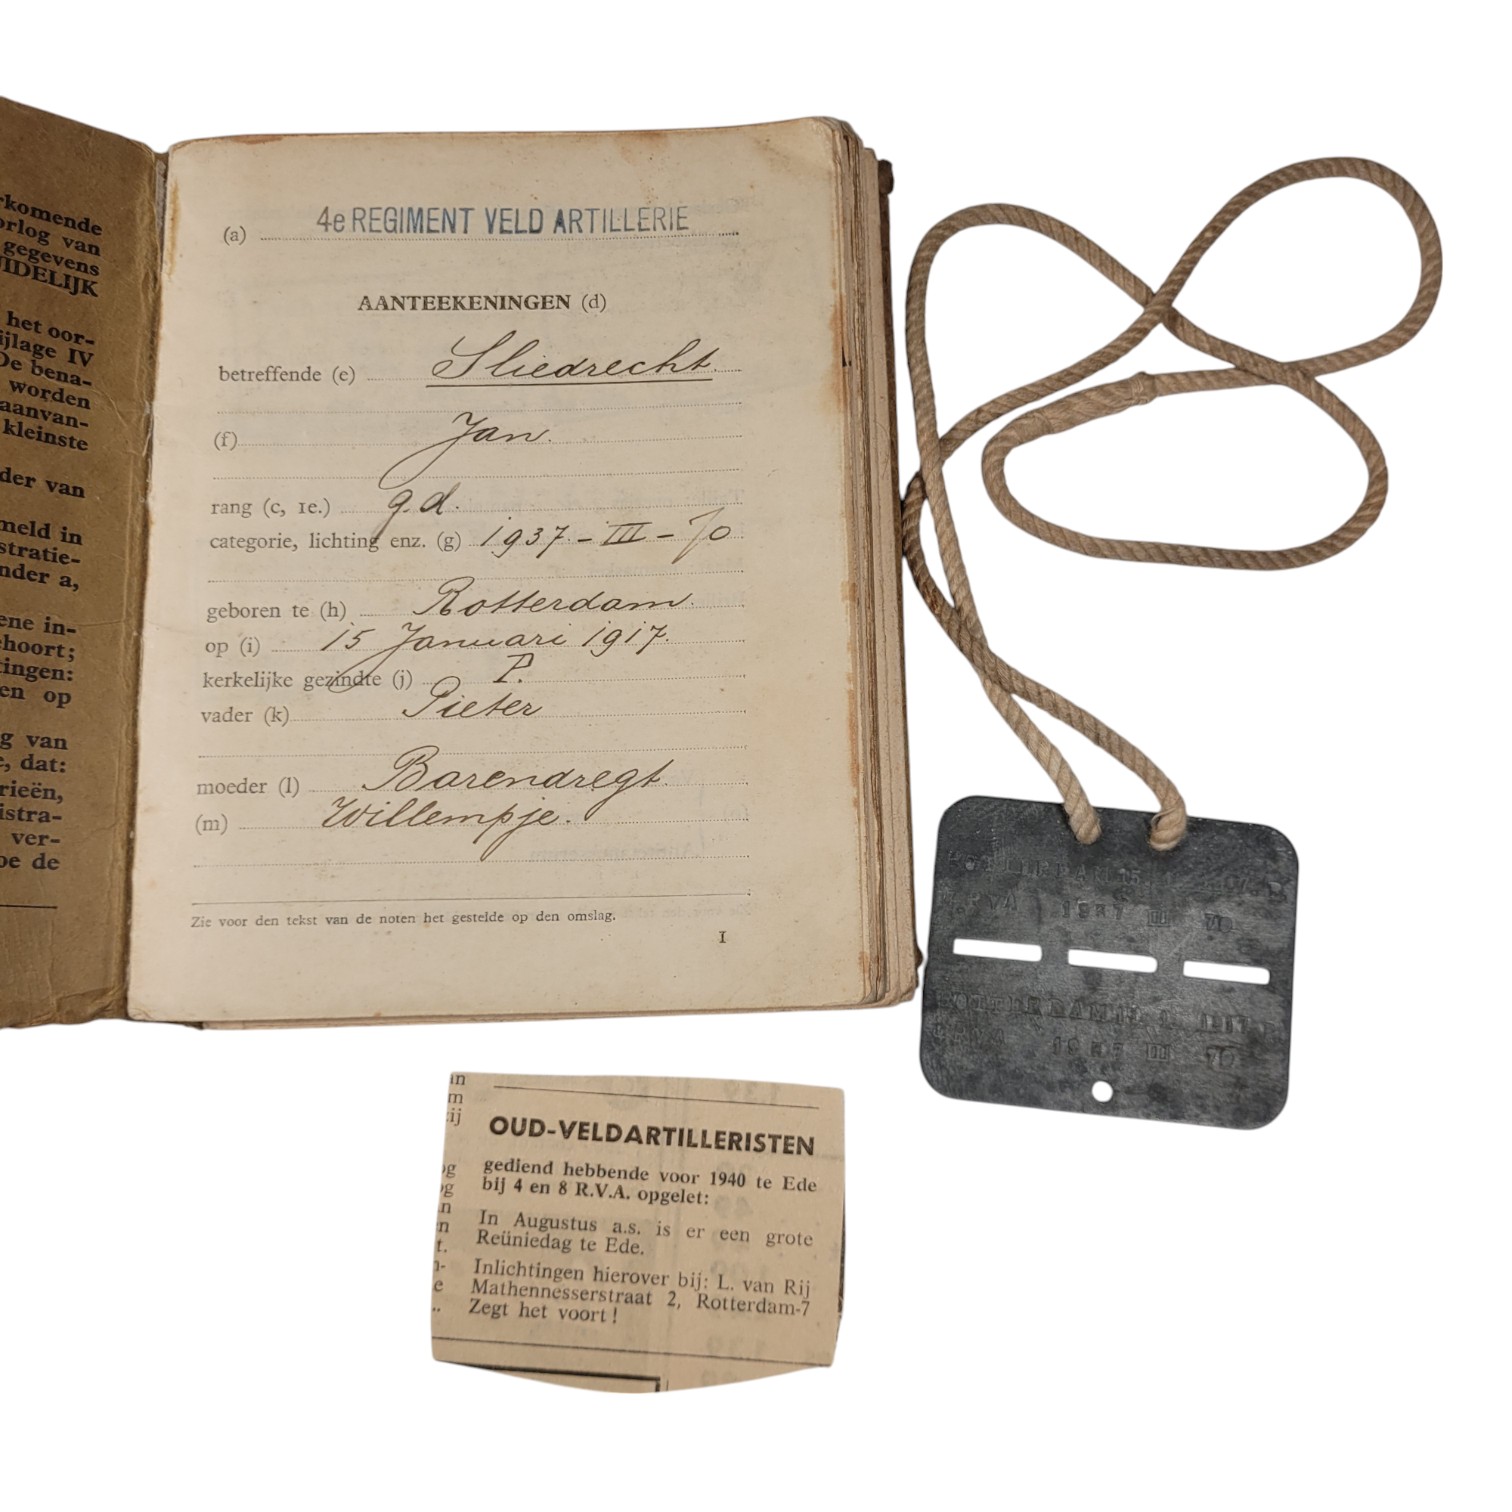 rkomende
orlog van
gegevens
IDELIJK
het oor-
ijlage IV
De bena-
worden
aanvan-
kleinste
der van
meld in
stratie-
nder a,
ene in-
ehoort;
tingen:
en op
g van
e, dat:
rieën,
istra-
ver-
oe de
(a) 4e REGIMENT VELD ARTILLERIE
AANTEEKENINGEN (d)
betreffende (e) Sliedrecht.
(f) Jan.
rang (c, 1e.) g.d.
categorie, lichting enz. (g) 1937 - III - 70
geboren te (h) Rotterdam.
op (i) 15 Januari 1917.
kerkelijke gezindte (j) P.
vader (k) Pieter
moeder (l) Barendregt.
(m) Willempje.
Zie voor den tekst van de noten het gestelde op den omslag.
1
1937 III 70
III 70
in
m
ij
OUD-VELDARTILLERISTEN
gediend hebbende voor 1940 te Ede
bij 4 en 8 R.V.A. opgelet:
In Augustus a.s. is er een grote
Reüniedag te Ede.
Inlichtingen hierover bij: L. van Rij
Mathennesserstraat 2, Rotterdam-7
Zegt het voort!